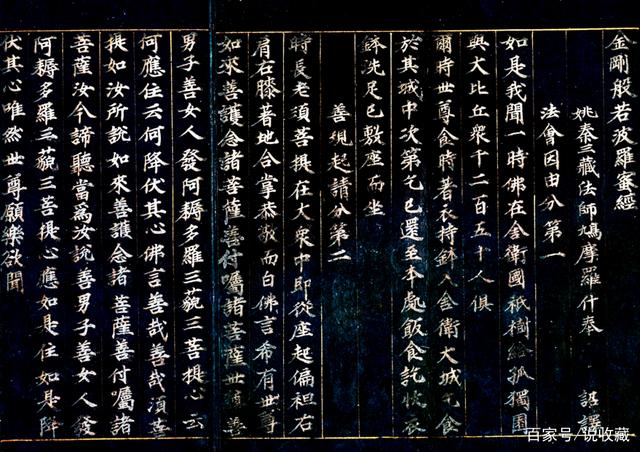 金剛般若波羅蜜經
姚秦三藏法師鳩摩羅什奉 詔譯
法會因由分第一
如是我聞一時佛在舍衛國祇樹給孤獨園
與大比丘眾千二百五十人俱
爾時世尊食時著衣持鉢入舍衛大城乞食
於其城中次第乞已還至本處飯食訖收衣
鉢洗足已敷座而坐
善現起請分第二
時長老須菩提在大眾中即從座起偏袒右
肩右膝著地合掌恭敬而白佛言希有世尊
如來善護念諸菩薩善付囑諸菩薩世尊善
男子善女人發阿耨多羅三藐三菩提心云
何應住云何降伏其心佛言善哉善哉須菩
提如汝所說如來善護念諸菩薩善付囑諸
菩薩汝今諦聽當為汝說善男子善女人發
阿耨多羅三藐三菩提心應如是住如是降
伏其心唯然世尊願樂欲聞
百家号/说收藏